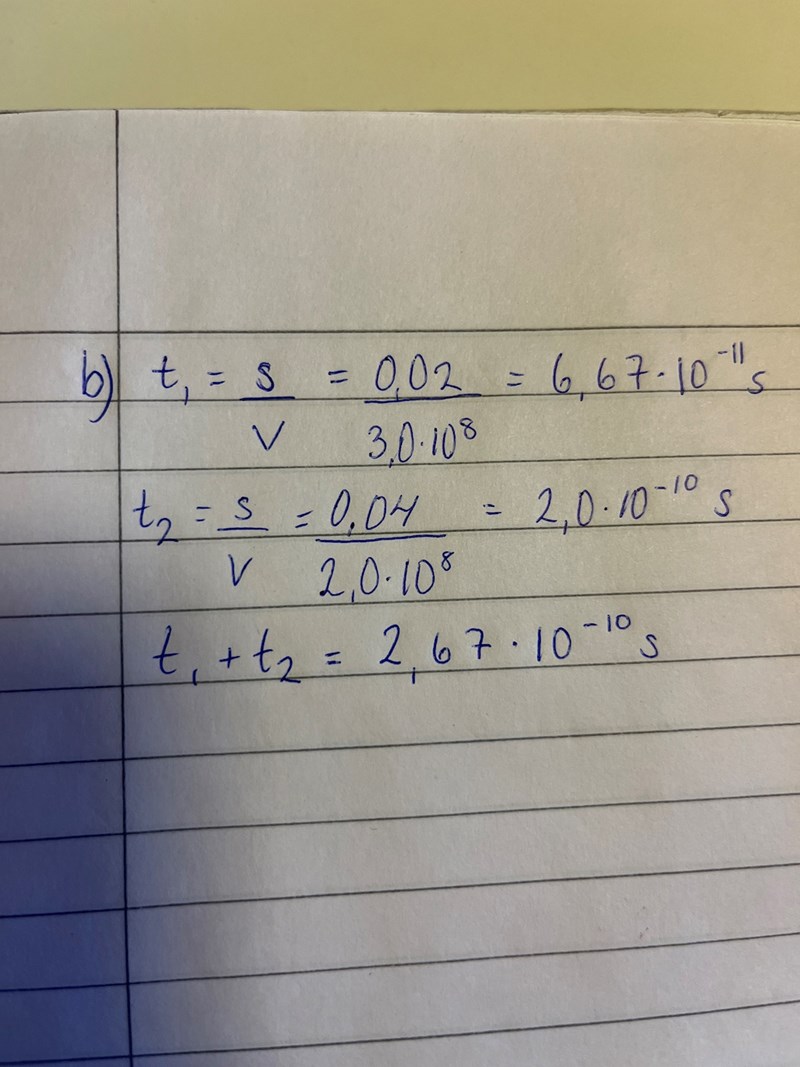 b) t₁ = s/V = 0,02/3,0·10⁸ = 6,67·10⁻¹¹ s
t₂ = s/V = 0,04/2,0·10⁸ = 2,0·10⁻¹⁰ s
t₁ + t₂ = 2,67·10⁻¹⁰ s